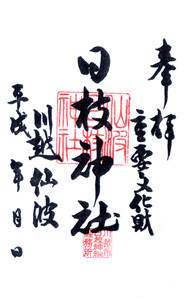 奉拝
重要文化財
日枝神社
川越仙波
平成 年 月 日